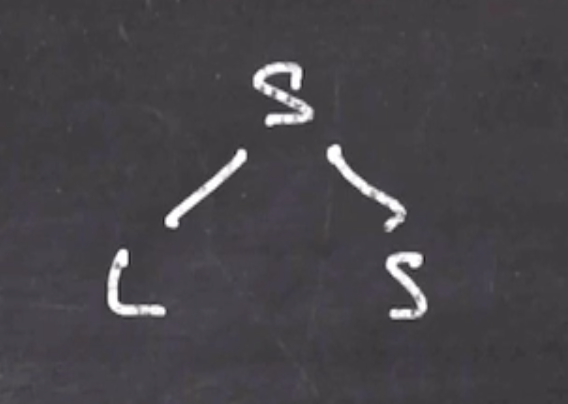 S
L S